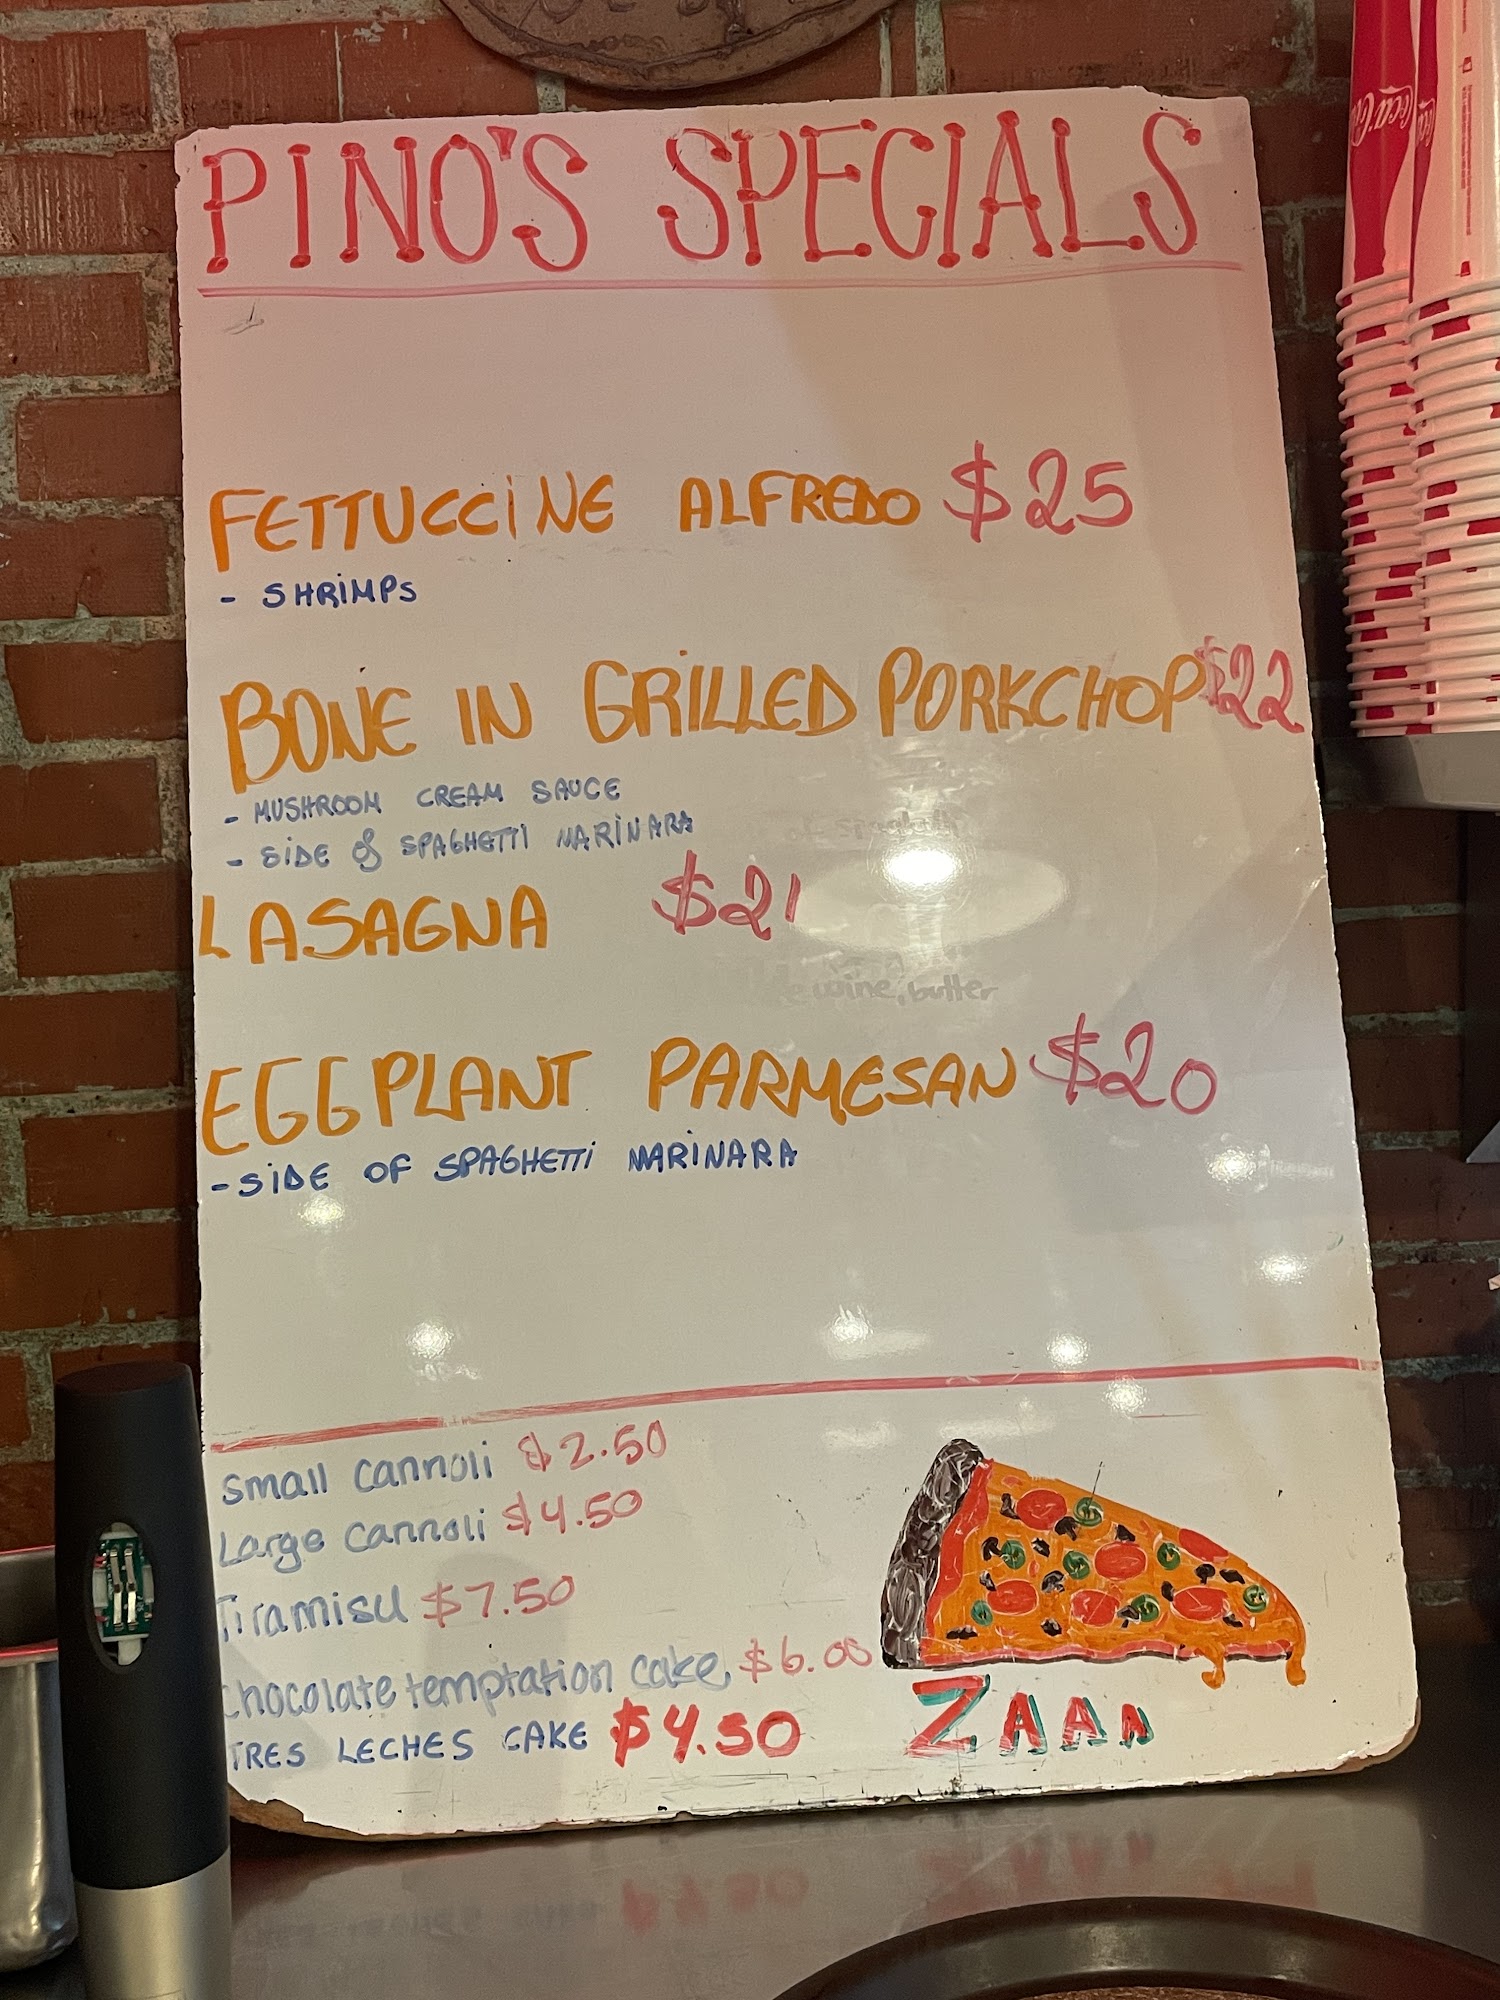 PINO'S SPECIALS
FETTUCCINE ALFREDO $25
- SHRIMPS
BONE IN GRILLED PORKCHOP $22
- MUSHROOM CREAM SAUCE
- SIDE of SPAGHETTI MARINARA
LASAGNA $21
wine, butter
EGGPLANT PARMESAN $20
- SIDE OF SPAGHETTI MARINARA
Small cannoli $2.50
Large cannoli $4.50
Tiramisu $7.50
Chocolate temptation cake $6.00
TRES LECHES CAKE $4.50
ZAAA